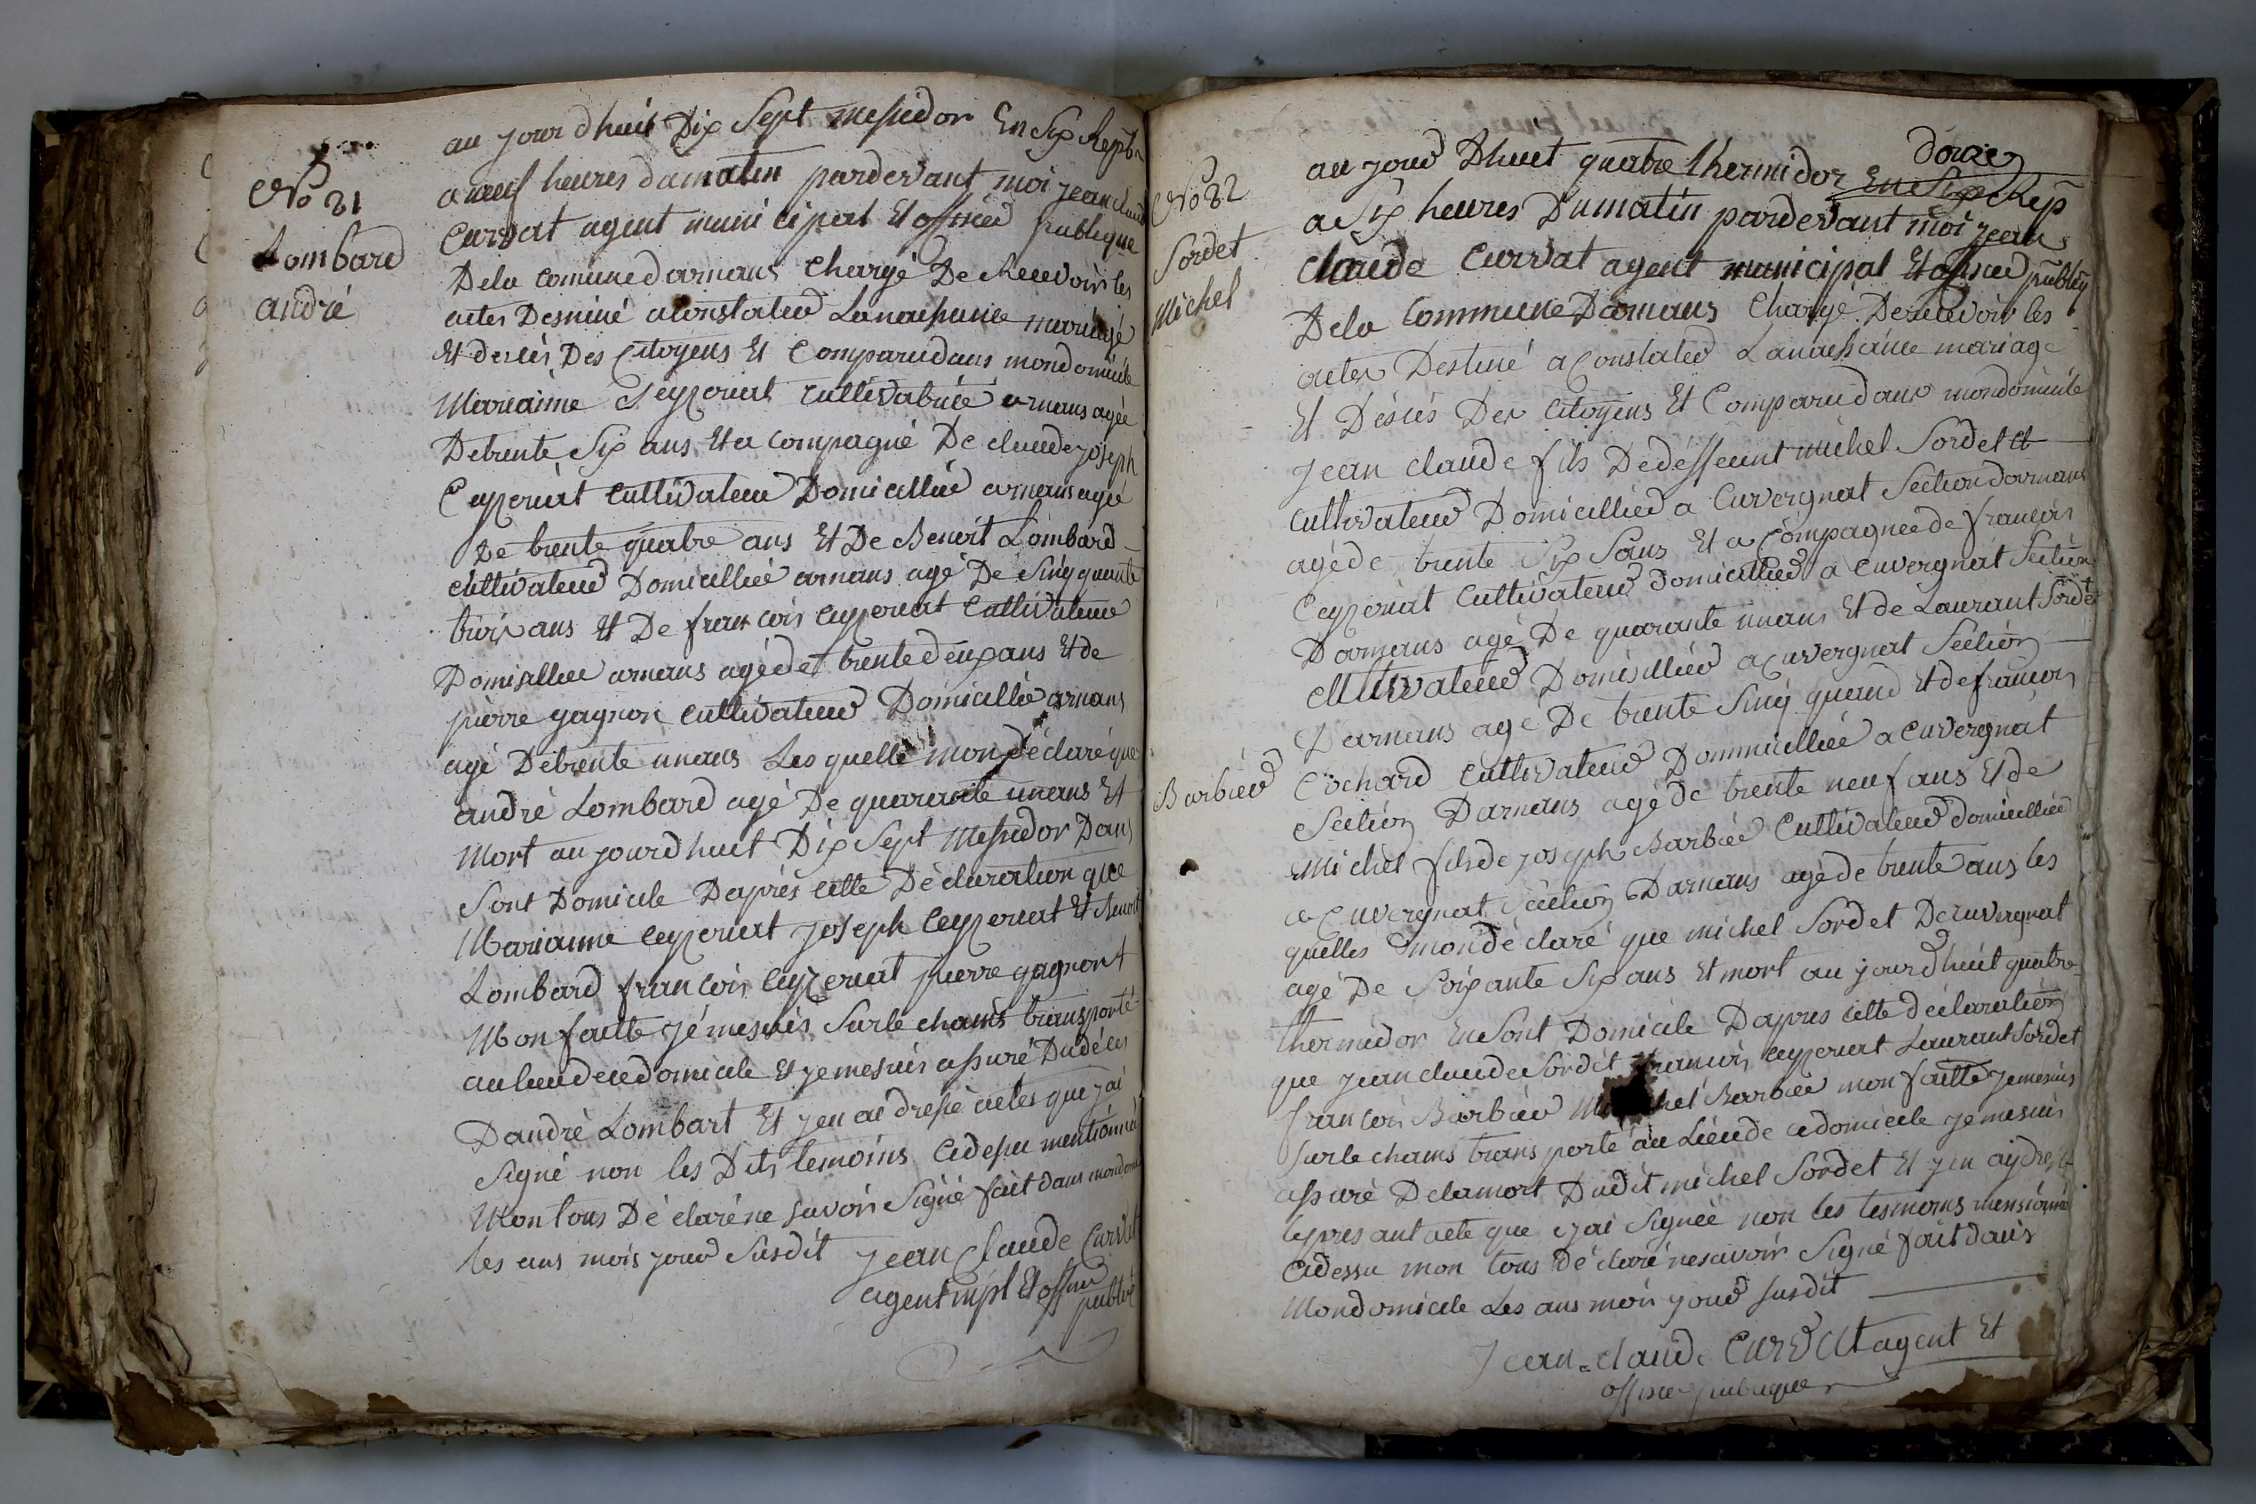 No 21
Lombard
andré
au jour dhuit Dix Sept messidor En Six Repb
a neuf heures dumatin pardevant moi jean claude
Curvat agent muni cipal Et officier publique
Dela comune darnans Chargé De Recevoir les
actes Destiné aConstater Lanaissance mariage
Et decès Des Citoyens Et Comparu dans mondomicile
Marianne Ceyzeriat cultivatrice arnans agée
Detrente Six ans Et a compagné De claude joseph
Ceyzeriat cultivateur Domicillié arnans agé
De trente quatre ans Et De Benoit Lombard
cultivateur Domicillié arnans agé De Sinq quante
trois ans Et De francois ceyzeriat Cultivateur
Domisillier arnans agé de trente deux ans Et de
pierre gagnon cultivateur Domicillié arnans
agé Detrente unans Les quelle mon déclaré que
andré Lombard agé De quarante unans Et
Mort au jourdhuit Dix Sept Messidor Dans
Sont Domicile Daprès cette Déclaration que
Marianne ceyzeriat joseph Ceyzeriat Et Benoit
Lombard francois Ceyzeriat pierre gagnont
Mon faitte jémesuis Surle chams transporté
au lieu dece domicile Et jemesuis assuré Dudécès
Dandré Lombart Et jen ai dressé actes que jai
Signé non les Dits temoins Cidessu mentionné
Mon tous Dé claré ne savoir Signé fait dans mondomi
les ans mois jour Susdit jean Claude Curvat
agent mpl Et officier
publiq
No 22
Sordet
Michel
Barbier
au jour Dhuit quatre thermidor En Six Rep
douze
a Six heures Dumatin pardevant moi jean
Claude Curvat agent municipal Et officier publiq
Dela Commune Darnans Chargé Derecevoir les
actes Destiné a Constater Lanaissance mariage
Et Déscés Des Citoyens Et Comparu dans mondomicile
Jean claude fils Dedéffeunt michel Sordet Et
Cultivateur Domicillier a Cuvergnat Section darnans
agé de trente Six Sans Et a Compagnée de francois
Ceyzeriat Cultivateur Domicillier a Cuvergnat Section
Darnans agé De quarante unans Et de Laurant Sordet
Cultivateur Domisillier a Cuvergnat Section
Darnans agé De trente Sinq quand Et de francois
Cochard Cultivateur Dommicillié a Cuvergnat
Section Darnans agé de trente neuf ans Et de
Michel fils de joseph Barbier Cultivateur domicillié
a Cuvergnat Section Darnans agé de trente ans les
quelles mondé claré que michel Sordet Decuvergnat
agé De Soixante Six ans Et mort au jourdhuit quatre
thermidor EnSont Domicile Dapres cette déclaration
que jean claude Sordet francois ceyzeriat Laurant Sordet
francois Barbier Mi chel Barbier mon faitte jemesuis
Surle chams trans porté au Lieu de cedomicile jemesuis
assuré Delamort Dudit michel Sordet Et jen ay dressé
lepresant acte que jai Signée non les tesmoins mensionné
Cidessu mon tous Dé claré nesavoir Signé fait dans
Mondomicile Les ans mois jour susdit
Jean-claude CURVAT agent Et
officier publique